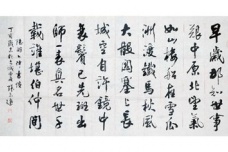 早歲那知世事
艱中原北望氣
如山樓船夜雪瓜
洲渡鐵馬秋風
大散關塞上長
城空自許鏡中
衰鬢已先斑出
師一表真名世千
載誰堪伯仲間